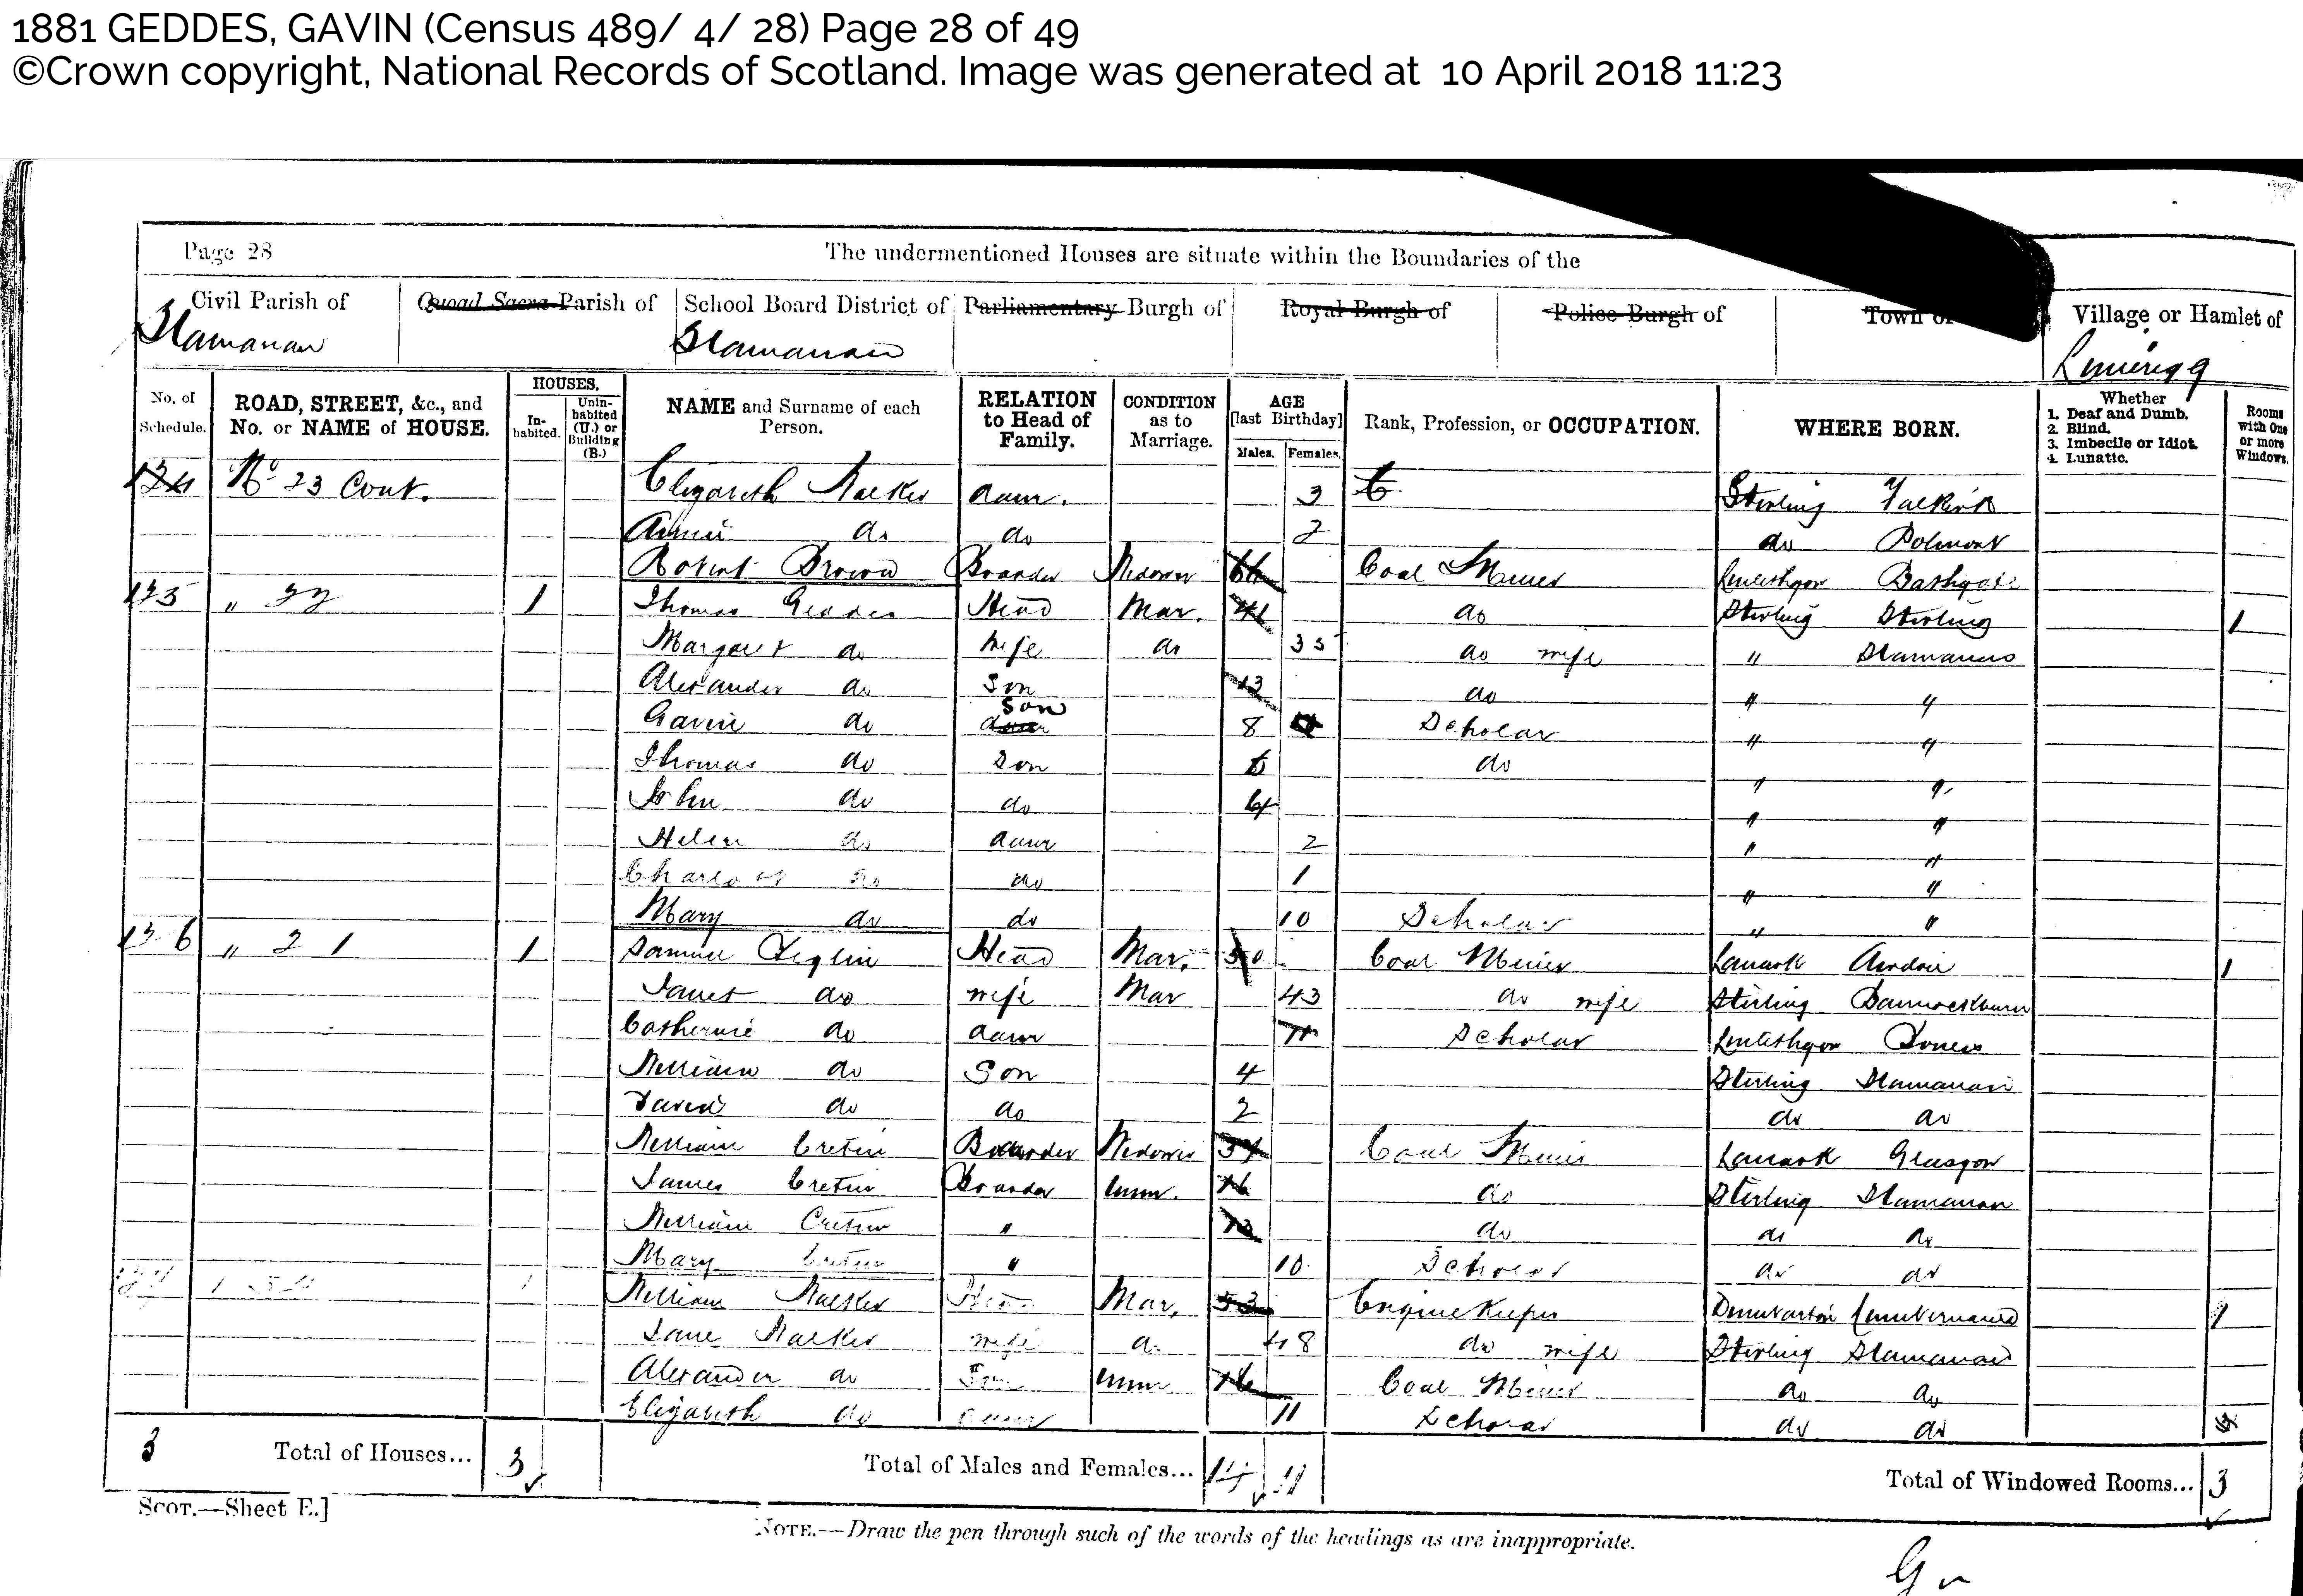 1881 GEDDES, GAVIN (Census 489/ 4/ 28) Page 28 of 49
©Crown copyright, National Records of Scotland. Image was generated at 10 April 2018 11:23
Page 28 The undermentioned Houses are situate within the Boundaries of the
Civil Parish of Quoad Sacra Parish of School Board District of Parliamentary Burgh of Royal Burgh of Police Burgh of Town of Village or Hamlet of
Slamanan Slamanan Limerigg
No. of Schedule. ROAD, STREET, &c., and No. or NAME of HOUSE. HOUSES. In-habited. Unin-habited (U.) or Building (B.) NAME and Surname of each Person. RELATION to Head of Family. CONDITION as to Marriage. AGE [last Birthday] Males. Females. Rank, Profession, or OCCUPATION. WHERE BORN. Whether 1. Deaf and Dumb. 2. Blind. 3. Imbecile or Idiot. 4. Lunatic. Rooms with One or more Windows.
134 No 23 Cont. Elizabeth Walker daur. 3 Stirling Falkirk
Annie do do 2 do Polmont
Robert Brown Boarder Widower Coal Miner Linlithgow Bathgate
135 " 22 1 Thomas Geddes Head Mar. 41 do Stirling Stirling 1
Margaret do Wife do 35 do wife " Slamanan
Alexander do Son 13 do " "
Gavin do Son 8 Scholar " "
Thomas do Son 6 do " "
John do do 4 " "
Helen do daur 2 " "
do do 1 " "
Mary do do 10 Scholar " "
136 " 21 1 Samuel Head Mar. 50 Coal Miner Lanark Airdrie 1
Janet do wife Mar 43 do wife Stirling Bannockburn
Catherine do daur 11 Scholar Linlithgow Boness
William do Son 4 Stirling Slamanan
David do do 2 do do
William Boarder Widower Coal Miner Lanark Glasgow
James Boarder Unm. 16 do Stirling Slamanan
William " do do do
Mary " 10 Scholar do do
1 William Walker Head Mar. 53 Engine Keeper Dumbarton Cumbernauld 1
Jane Walker wife do 48 do wife Stirling Slamanan
Alexander do Son Unm 16 Coal Miner do do
Elizabeth do daur 11 Scholar do do
3 Total of Houses... 3 Total of Males and Females... 14 11 Total of Windowed Rooms... 3
SCOT.—Sheet E.]
NOTE.—Draw the pen through such of the words of the headings as are inappropriate.